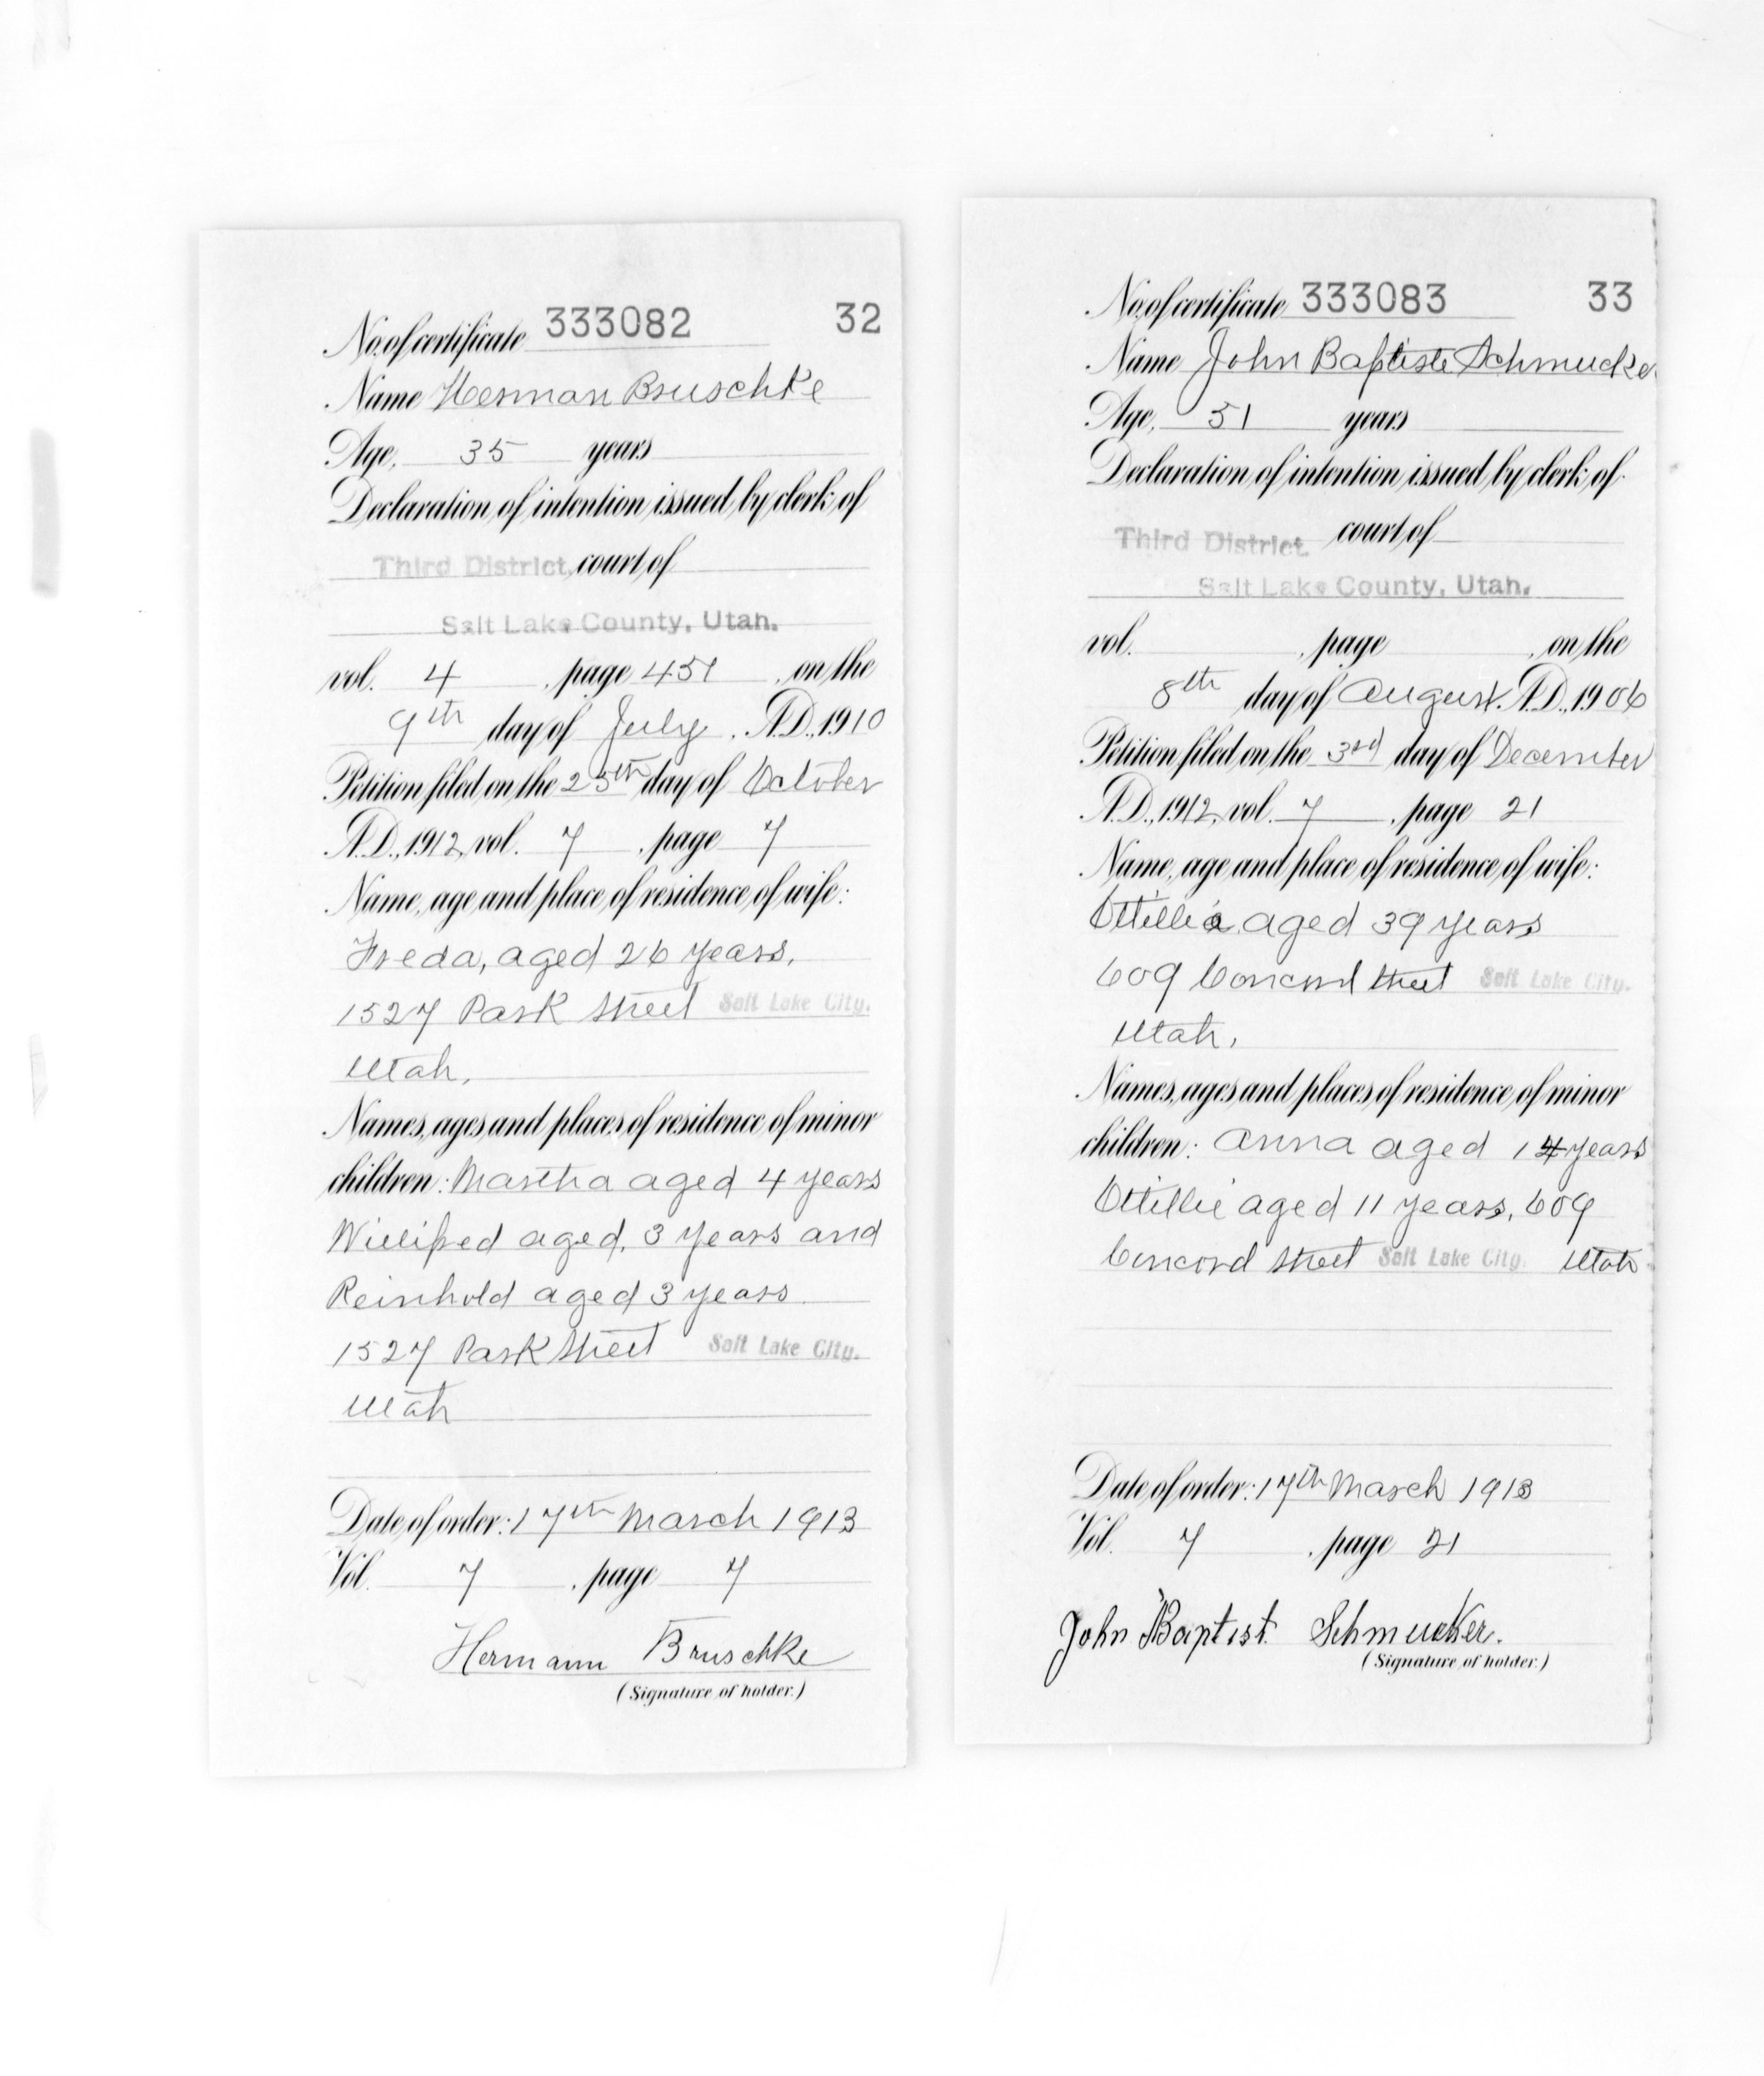 No. of certificate 333082 32
Name Herman Bruschke
Age, 35 years
Declaration of intention issued by clerk of
Third District, court of
Salt Lake County, Utah.
vol. 4, page 451, on the
9th day of July, A.D., 1910
Petition filed on the 25th day of October
A.D., 1912, vol. 7, page 7
Name, age and place of residence of wife:
Freda, aged 26 years,
1527 Park Street Salt Lake City.
Utah,
Names, ages and places of residence of minor
children: Martha aged 4 years
aged, 3 years and
Reinhold aged 3 years
1527 Park Street Salt Lake City.
Utah
Date of order: 17th March 1913
Vol. 7, page 7
Hermann Bruschke
(Signature of holder.)
No. of certificate 333083 33
Name John Baptiste Schmucker
Age, 51 years
Declaration of intention issued by clerk of
Third District. court of
Salt Lake County, Utah.
vol. , page , on the
8th day of August. A.D., 1906
Petition filed on the 3rd day of December
A.D., 1912, vol. 7, page 21
Name, age and place of residence of wife:
Ottillia aged 39 years
609 Concord Street Salt Lake City.
Utah,
Names, ages and places of residence of minor
children: Anna aged 14 years
Ottillie aged 11 years, 609
Concord Street Salt Lake City. Utah
Date of order: 17th March 1913
Vol. 7, page 21
John Baptist Schmucker.
(Signature of holder.)